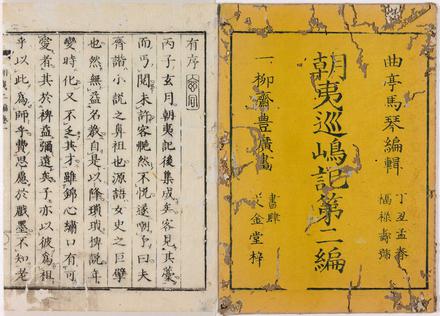 曲亭馬琴編輯
丁丑孟春
福祿壽瑞
朝夷巡嶋記第二編
一柳齋豊廣畫
書肆
文金堂梓
有序
丙子玄月朝夷記後集成矣客見其藁
而丐閲未許客艴然不悦遂嘲曰夫
齊諧小說之鼻祖也源語女史之巨擘
也然無益名教自是以降瑣瑣稗說年
變時化又不乏其才雖錦心繡口有可
愛者其於裨益彌遠矣子亦以彼為祖
乎以此為師乎費思慮於戲墨不知老